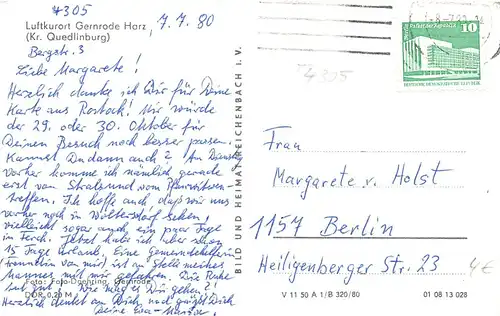 4305
Luftkurort Gernrode Harz
(Kr. Quedlinburg)
7. 7. 80
Bergstr. 3
Liebe Margarete!
Herzlich danke ich Dir für Deine
Karte aus Rostock! Mir würde
der 29. oder 30. Oktober für
Deinen Besuch noch besser passen.
Kannst Du dann auch? Am Dienstag
vorher komme ich nämlich gerade
erst von Stralsund vom
treffen. Ich hoffe auch, daß wir uns
vorher noch in Woltersdorf sehen!
vielleicht sogar auch ein paar Tage
in Ferch. Jetzt habe ich hier schon
15 Tage Urlaub. Eine Gemeindehelferin
von mir ist an Stelle meines
Mannes mit mir gefahren. Die Ruhe
tut gut. Wie mag es Dir gehen?
Herzlich denkt an Dich, noch grüßt Dich
Deine Eva-
Foto: Foto-Daehring, Gernrode
DDR 0,20 M
BILD UND HEIMAT REICHENBACH I. V.
4305
10
DEUTSCHE DEMOKRATISCHE REPUBLIK
Frau
Margarete v. Holst
1157 Berlin
Heiligenberger Str. 23
4€
V 11 50 A 1/B 320/80
01 08 13 028